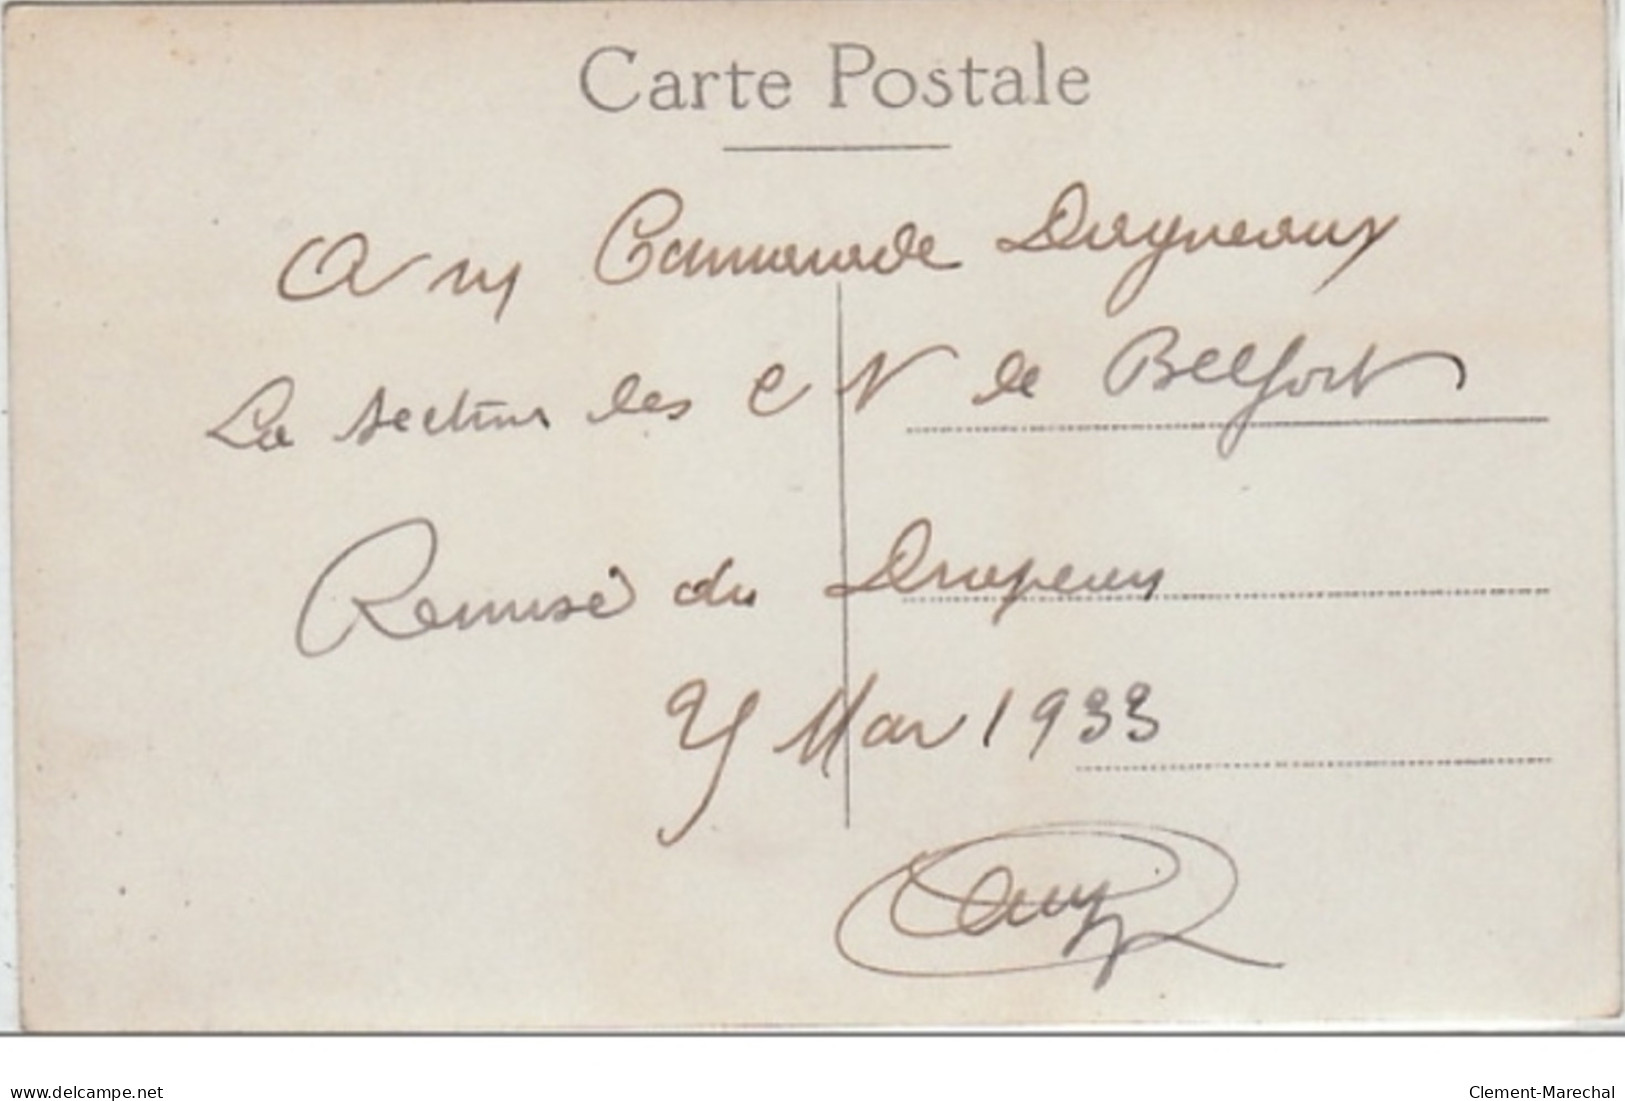 Carte Postale
A m Camarade Dagneaux
La section des C V de Belfort
Remise du Drapeau
Mai 1933
www.delcampe.net
Clement-Marechal